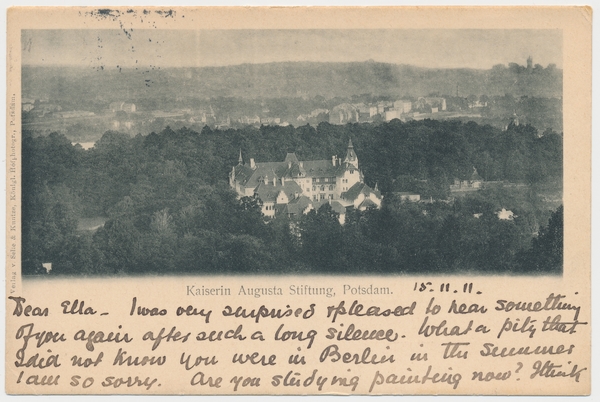 Verlag v. Selle & Kuntze, Königl. Hofphotogr., Potsdam.
Kaiserin Augusta Stiftung, Potsdam.
15.11.11.
Dear Ella – I was very surprised & pleased to hear something
of you again after such a long silence. What a pity that
I did not know you were in Berlin in the Summer
I am so sorry. Are you studying painting now? I think